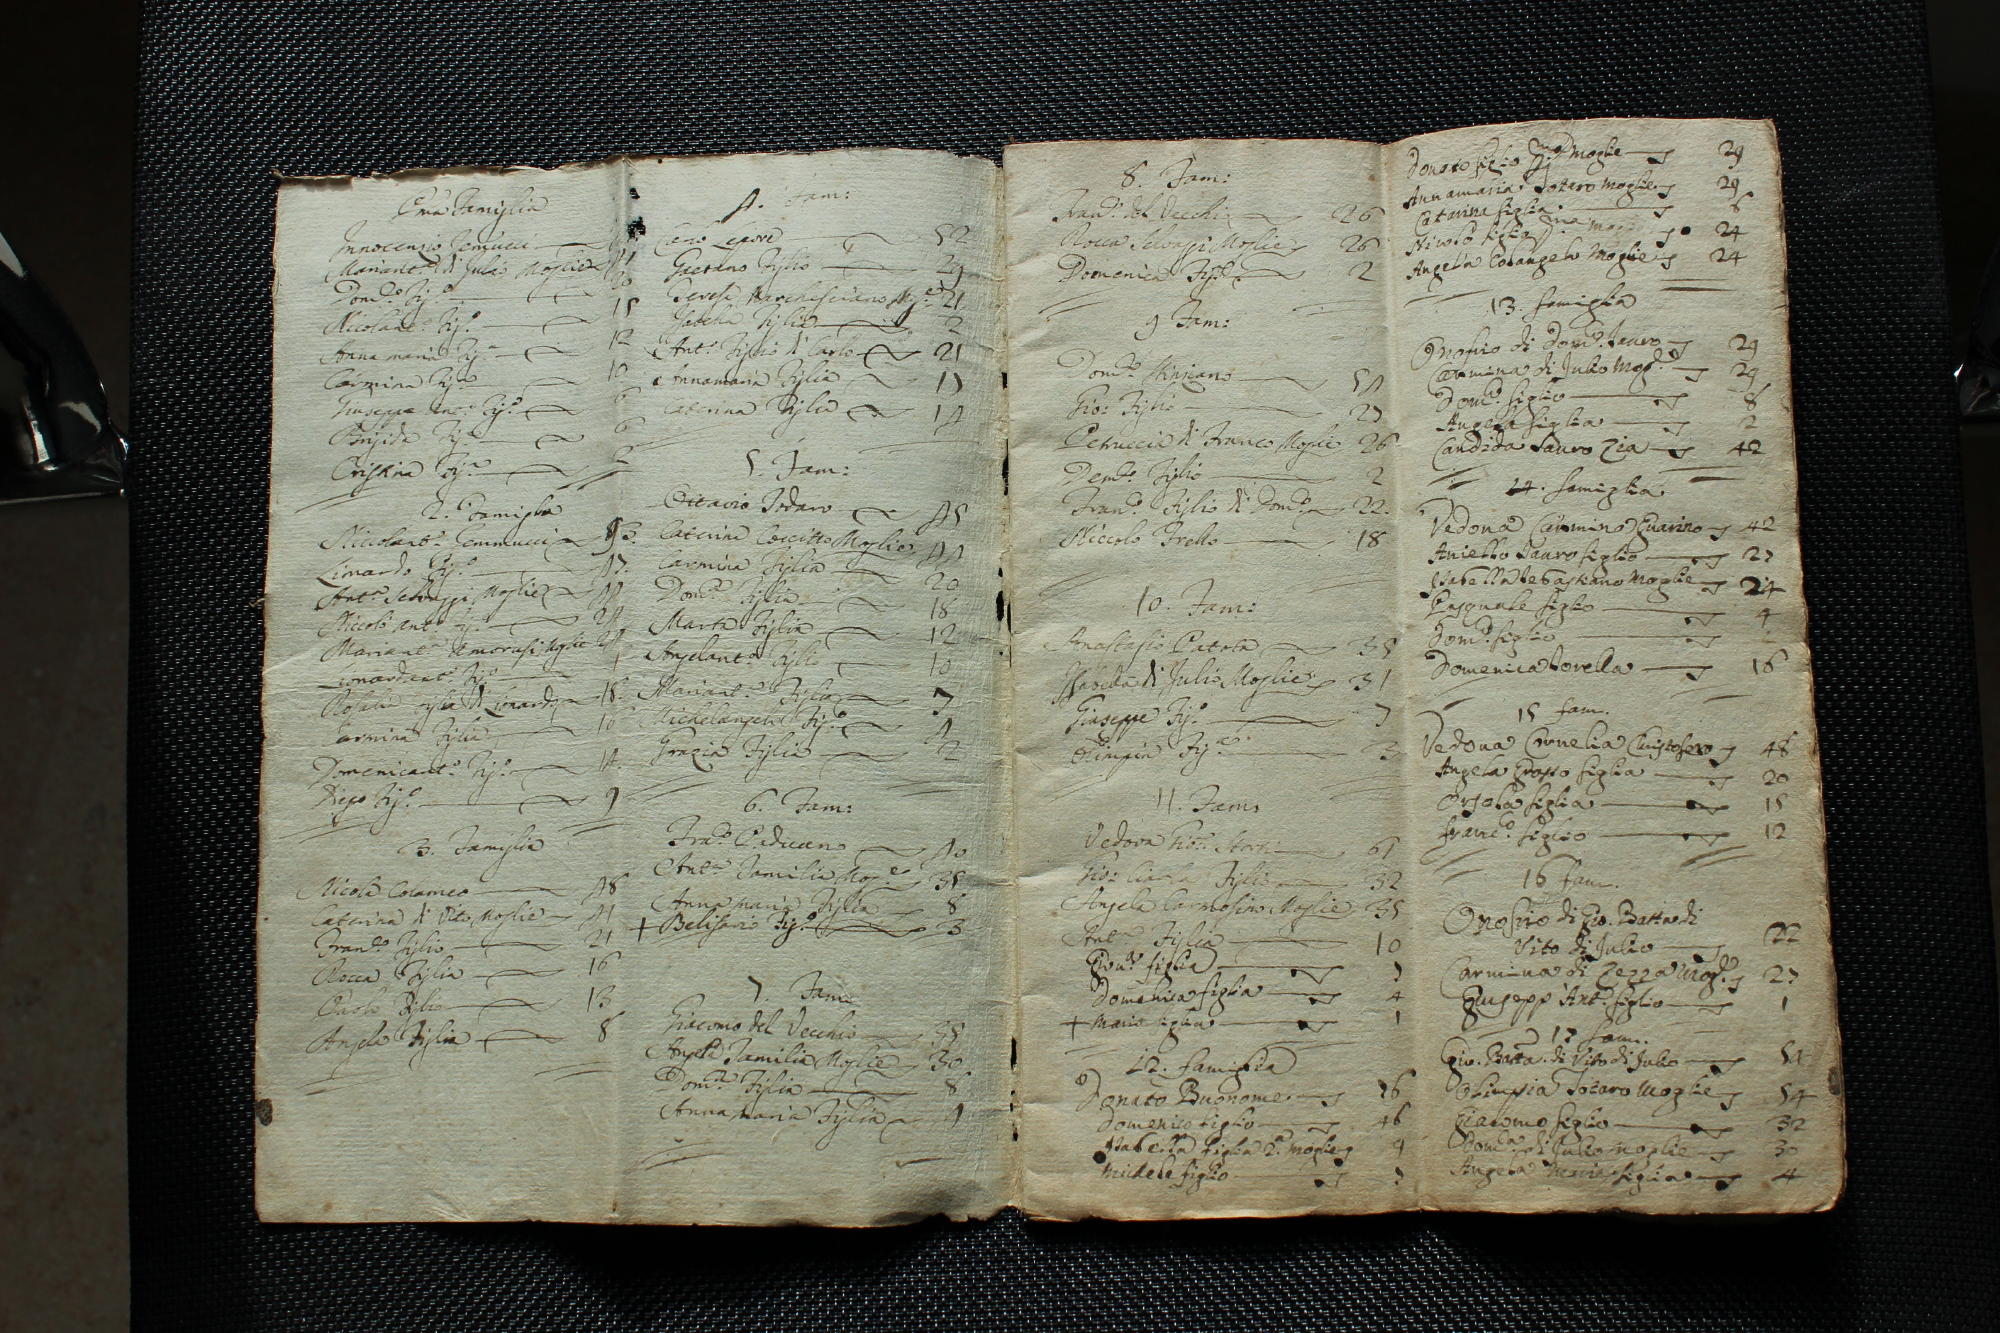 Famiglia
Innocenzio Iennucci
Mariant.a di Julio Moglie
Dom.co fig.o 20
Nicolant.o fig.o 15
Anna maria fig.a 12
Carmina fig.a 10
Giuseppe Ant.o fig.o 6
Brigida fig.a 6
Cristina fig.a 2
2. Famiglia
Niccolant.o Iennucci 93.
Lionardo fig.o 47.
Ant.a Selvaggi Moglie 44
Niccolò ant.o fig.o 24
Mariant.a Amorusi Moglie 24
Lionardant.o fig.o 1
Rosalia figlia di Lionardo 18.
Carmina figlia 16
Domenicant.o fig.o 14.
Diego fig.o 9
3. Famiglia
Nicola Colameo 48
Caterina di Vito Moglie 41
Fran.co figlio 21
Rocca figlia 16
Carlo figlio 13
Angela figlia 8
4. Fam:
Lepore 52
Gaetano figlio 29
Teresa Marchesciano Mog.e 21
Isabella figlia 2
Ant.o figlio di Carlo 21
Annamaria figlia 17
Caterina figlia 14
5. Fam:
Ottavio Todaro 45
Caterina Moglie 44
Carmina figlia 20
Dom.ca figlia 18
Marta figlia 12
Angelant.o figlio 10
Mariant.a figlia 7
Michelangelo fig.o 4
Grazia figlia 2
6. Fam:
Fra.co Paduano 40
Ant.a Familia Mog.e 35
Anna maria figlia 8
+ Belisario fig.o 3
7. Fam:
Giacomo del Vecchio 35
Angela Familia Moglie 30
Dom.ca figlia 8
Anna maria figlia 4
8. Fam:
Fran.o del Vecchio 26
Rocca Selvaggi Moglie 26
Domenica fig.a 2
9 Fam:
Dom.co 54
Gio: figlio 27
Petruccia di Franco Moglie 26
Dom.co figlio 2
Fran.co figlio di Dom.co 22.
Niccolò Trello 18
10. Fam:
Anastasio Patota 35
Isabella di Julio Moglie 31
Giuseppe fig.o 7
Olimpia fig.a 3
11. Fam:
Vedova 61
figlio 32
Angela Carmosino Moglie 35
Ant.a figlia 10
figlia 7
Domenica figlia 4
+ Maria figlia 1
12. famiglia
Donato Buonome 76
Domenico figlio 46
Isabella figlia 2.a moglie 9
Michele figlio 7
Donato figlio moglie 29
Annamaria Totaro moglie 29
Catarina figlia 6
Nicolò figlio 24
Angela Colangelo moglie 24
13. famiglia
Onofrio di Dom.co Tauro 29
Carmina di Julio Mog.e 29
Dom.co figlio 8
Angela figlia 2
Candida Tauro Zia 42
14. famiglia
Vedova Carmina Guarino 42
Aniello Tauro figlio 27
Isabella Sebastiano Moglie 24
Pasquale figlio 4
Dom.co figlio
Domenica Lovella 16
15 fam.
Vedova Cornelia Cristofero 48
Angela Grosso figlia 20
Orsola figlia 15
Franc.o figlio 12
16 fam.
Onofrio di Gio. Batta di
Vito di Julio 22
Carmina di Pezza mog.e 27
Giusepp' Ant.o figlio 1
17 fam.
Gio. Batta. di Vito di Julio 54
Olimpia Totaro Moglie 54
Giacomo figlio 32
Dom.ca di Julio moglie 30
Angela Maria figlia 4